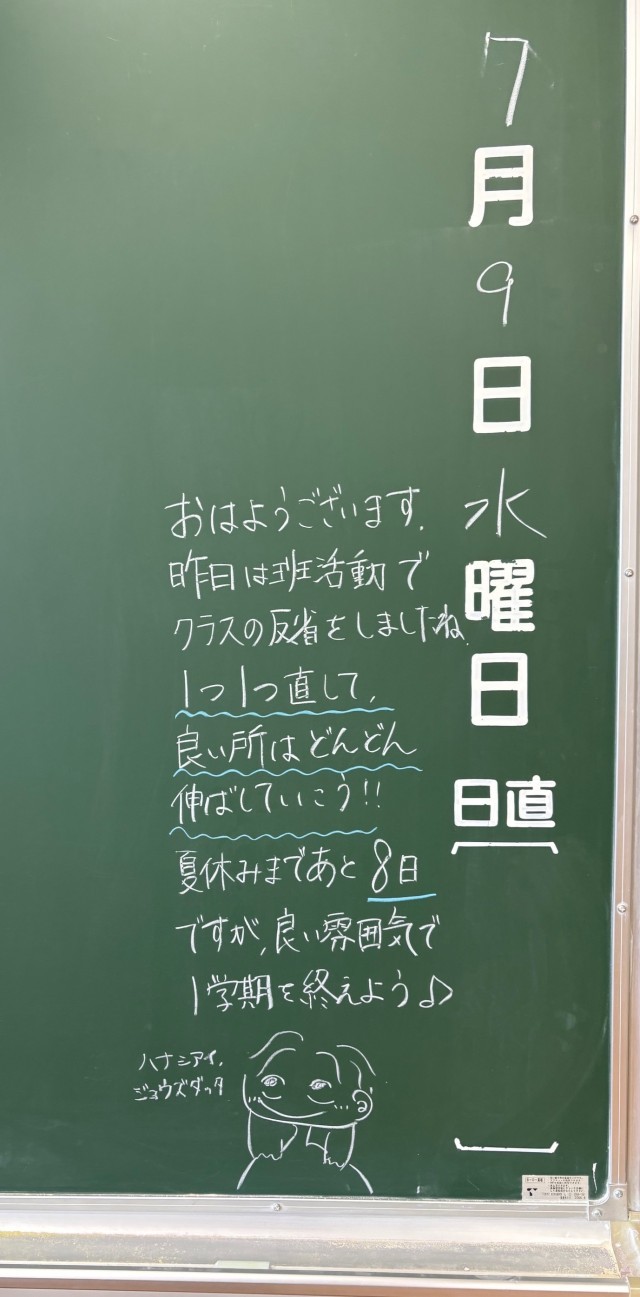 7月9日水曜日
日直
おはようございます.
昨日は班活動で
クラスの反省をしましたね.
1つ1つ直して,
良い所はどんどん
伸ばしていこう!!
夏休みまであと8日
ですが,良い雰囲気で
1学期を終えよう♪
ハナシアイ,
ジョウズダッタ